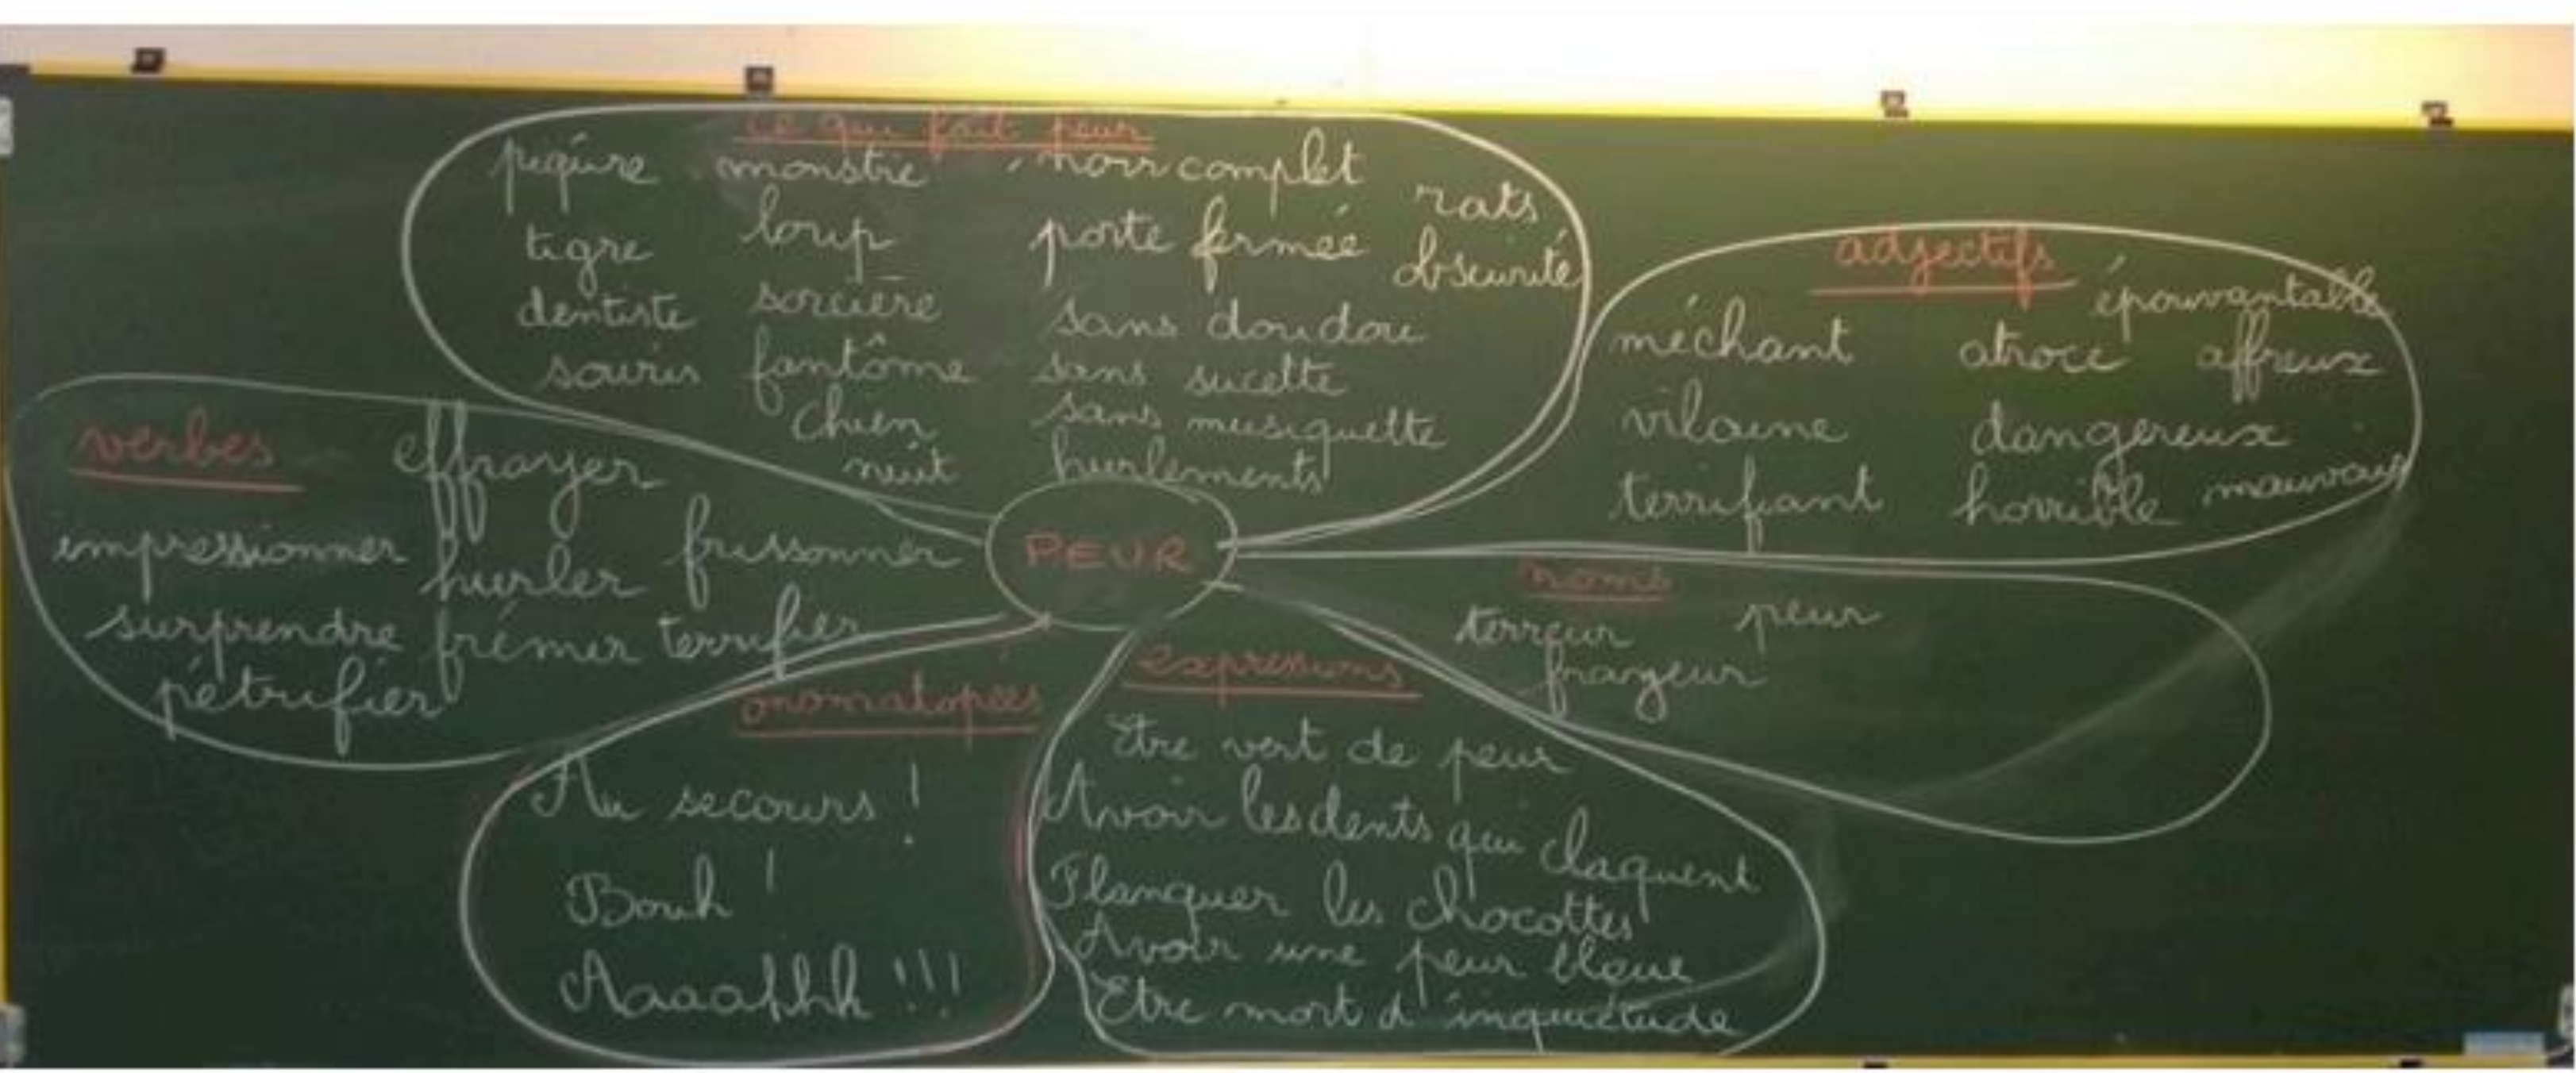 ce qui fait peur
piqûre monstre noir complet
rats
tigre loup porte fermée
obscurité
dentiste sorcière sans doudou
souris fantôme sans sucette
chien sans musiquette
nuit hurlements
adjectifs
épouvantable
méchant atroce affreux
vilaine dangereux
terrifiant horrible mauvais
verbes effrayer
impressionner hurler frissonner
surprendre frémir terrifier
pétrifier
PEUR
noms
terreur peur
frayeur
onomatopées
Au secours !
Bouh !
Aaaahhh !!!
expressions
Etre vert de peur
Avoir les dents qui claquent
Flanquer les chocottes
Avoir une peur bleue
Etre mort d'inquiétude